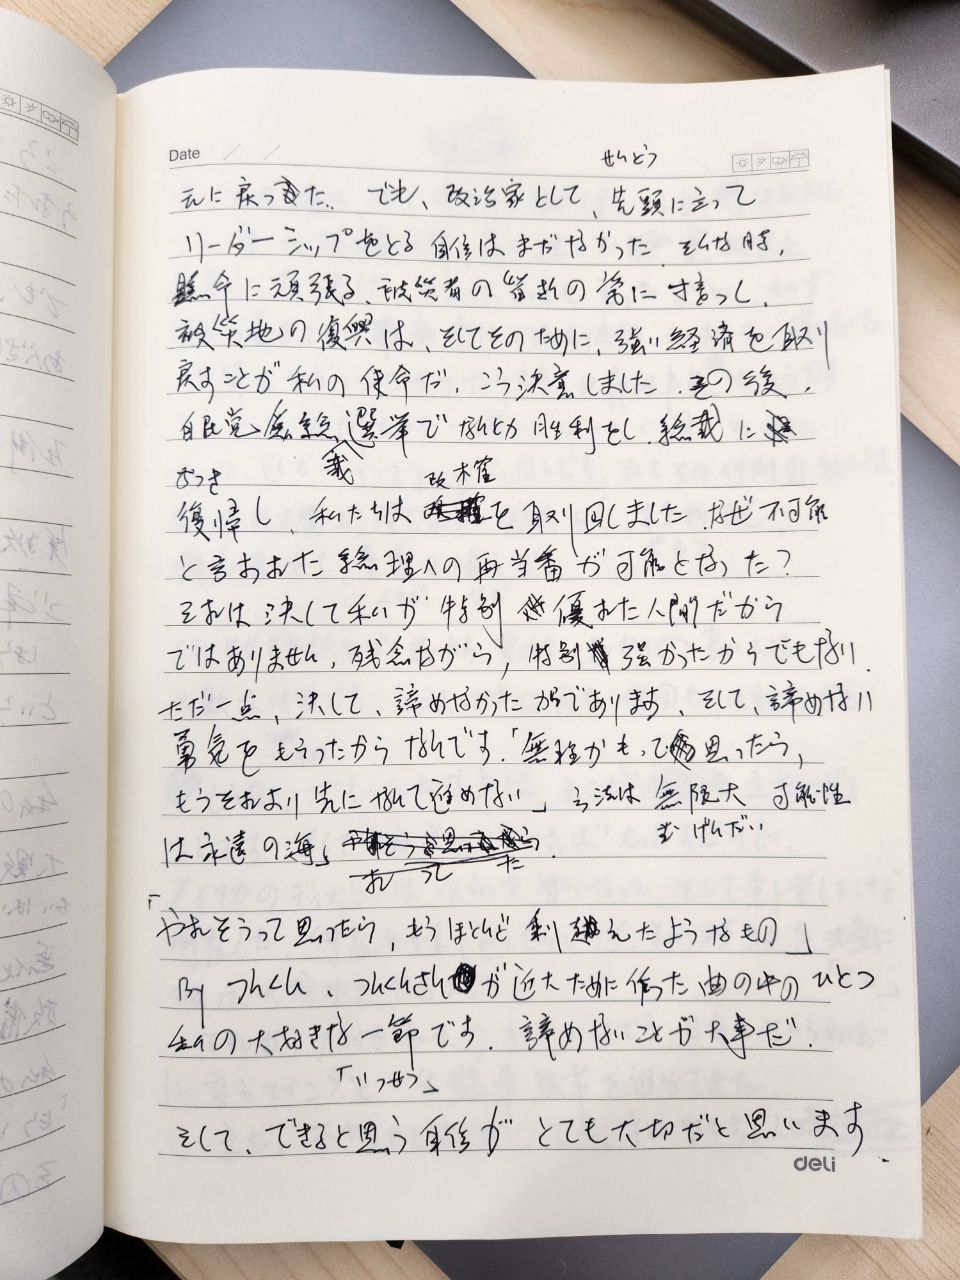 Date / /
せんどう
元に戻った. でも、政治家として、先頭に立って
リーダーシップをとる自信はまだなかった. そんな時,
懸命に頑張る、被災者の皆さんの
被災地の復興は、そしてそのために、強い経済を取り
戻すことが私の使命だ. こう決意しました. その後,
自民党総裁選挙でなんとか勝利をし、総裁に
裁
政権
復帰し、私たちは を取り回しました. なぜ不可能
と言われた総理への再当番が可能となった?
それは決して私が特別 優れた人間だから
ではありません. 残念ながら, 特別 強かったからでもない.
ただ一点、決して、諦めなかったからであります、そして、諦めない
勇気をもらったからなんです.「無理かもって思ったら,
もうそれより先になんて進めない」 方法は無限大 可能性
むげんだい
は永遠の海」
れ って た
「
やれそうって思ったら, もうほとんど 越えたようなもの」
By つんくん、つんくさんが近大ために作った曲の中のひとつ
私の大好きな一節です. 諦めないことが大事だ.
「いっせつ」
そして、できると思う自信がとても大切だと思います.
deli